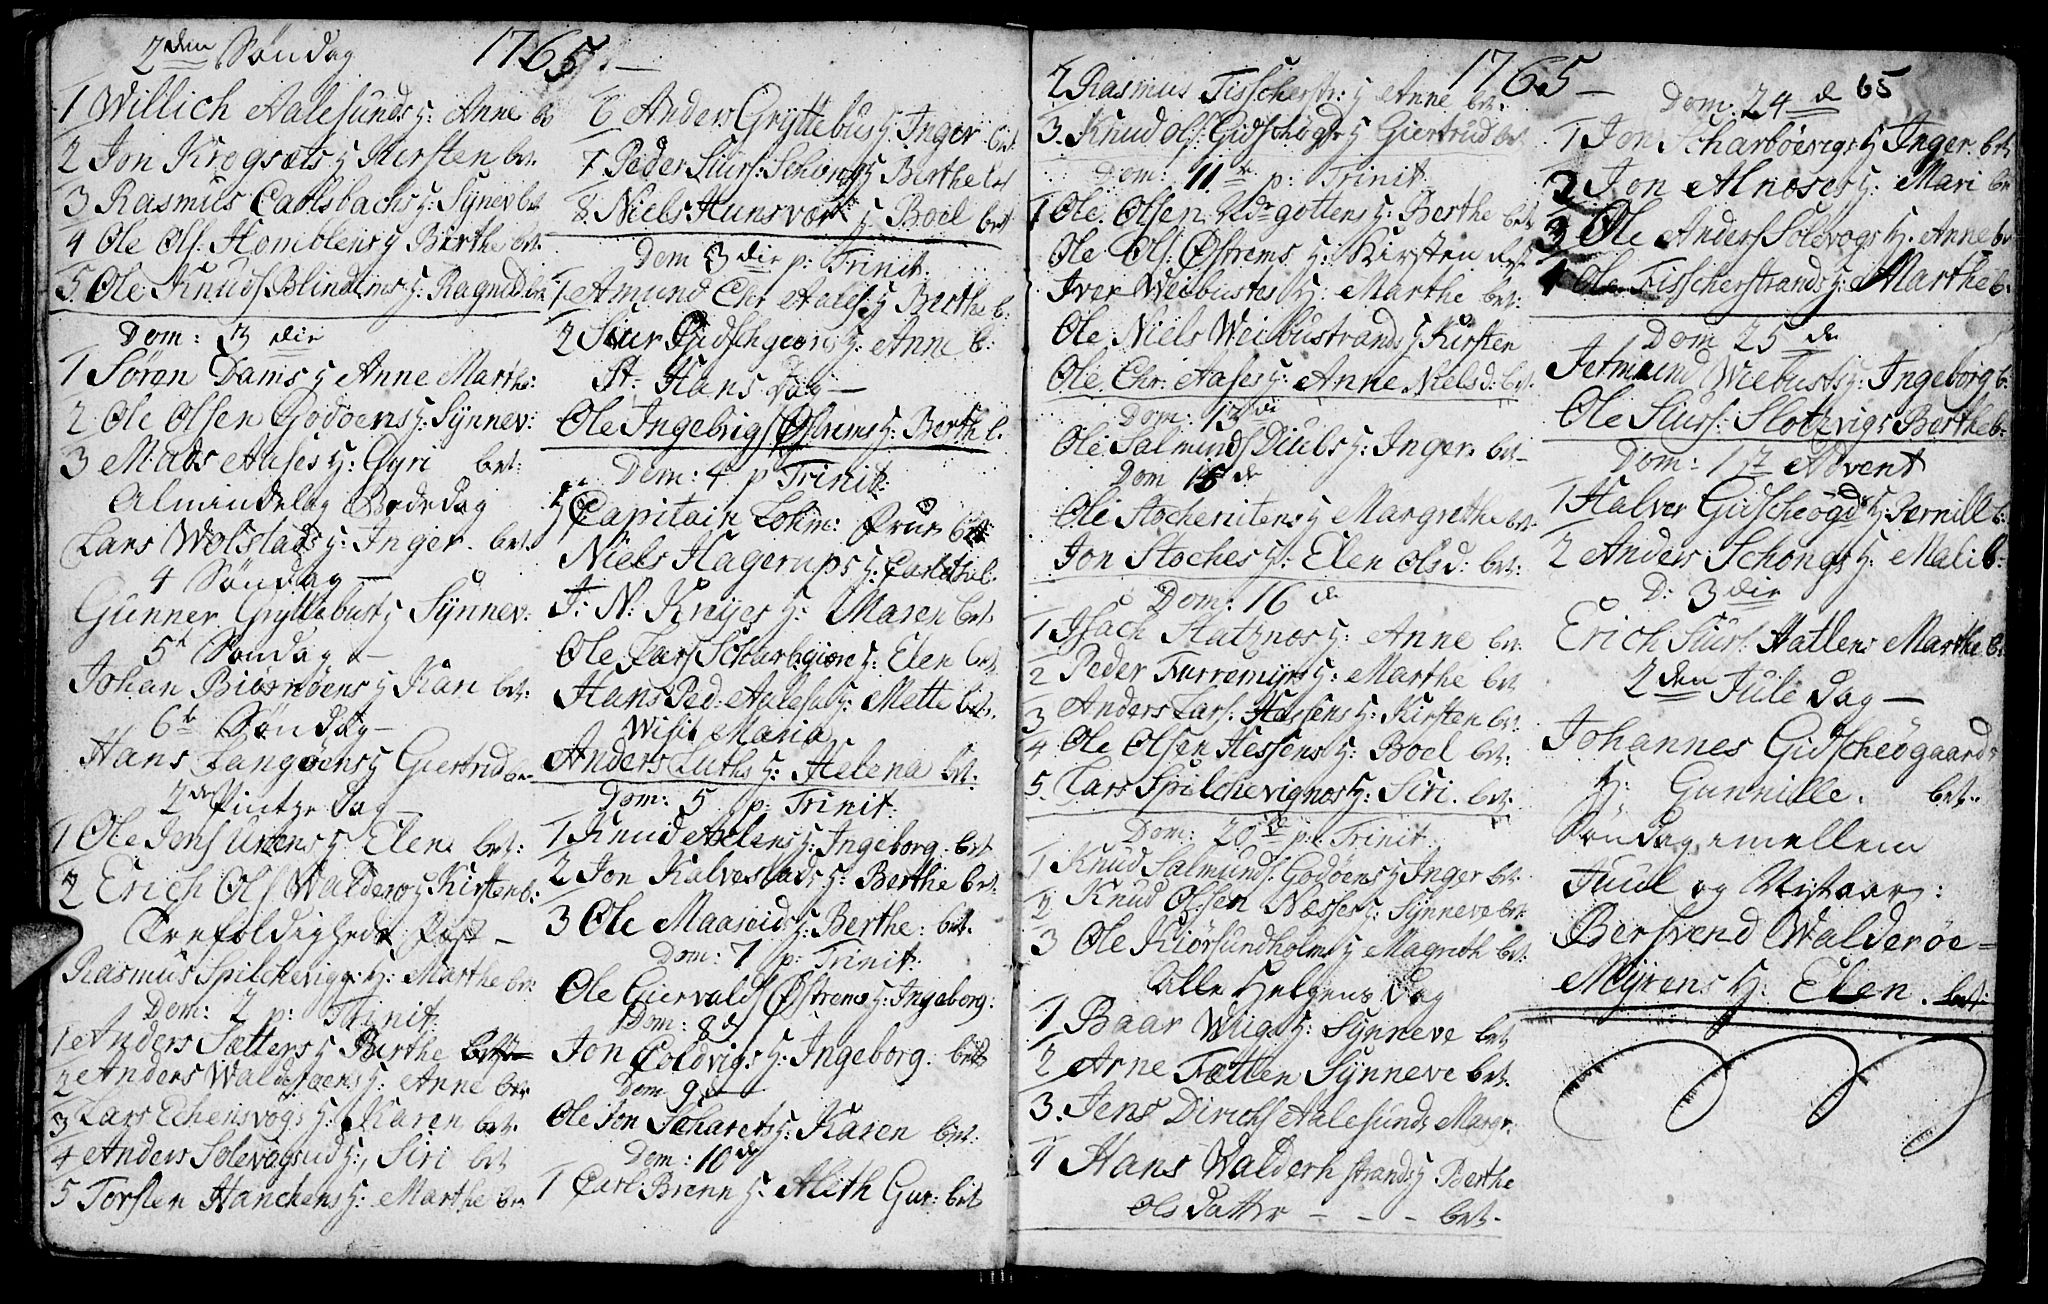 2den Søndag
1765.
1 Willich Aalesunds H: Anne b
2 Jon Krogsæts H Kirsten bet.
3 Rasmus Carlsbachs H: Synev bet
4 Ole Ols: Homblens H Birthe bet.
5. Ole Knuds Blindems H: Ragnild be
Dom: 3 die
1 Søren Dams H Anne Marth:
2 Ole Olsen Godøens H: Synnev:
3 Mads Aases H: Gyri bet:
Almindelig Bededag
Lars Wolstads H: Inger. bet.
4 Søndag —
Gunner Grytlebust H Synnev:
5t Søndag —
Johan Biørnøens H Kari bet:
6te Søndag —
Hans Langøens H Giertrud be
2den Pintze Dag
1 Ole Jens H Elen bet:
2 Erich Ols Walderø H Kirsten b:
Trefoldigheds Fest —
Rasmus Spilchevigs H: Marthe be:
Dom: 2 p: Trinit:
1 Anders Sætters H Berthe
2 Anders Walderøens H: Anne be
3 Lars Echensvogs H: Karen bet.
4 Anders Solevogsud H: Siri bet
5 Torsten Hanchens H: Marthe be
6 Anders Gryttebus H Inger bet.
7 Peder Siurs: Schong H Berthe bet
8. Niels Hunsvor H. Boel bet
Dom 3 die p: Trinit:
1 Amund Chr Aales H Berthe b:
2 Siur Gidschgiors H: Anne b:
St: Hans Dag —
Ole Ingebrigs Østrems H: Berth b.
Dom: 4 p Trinit:
Capitain Lohm: Frue bet
Niels Hagerups H: b.
J: N: Kreyes H: Maren bet
Ole Lars Scharbgiøre H: Elen bet
Hans Ped: Aalesu H: Mette bet.
Wisit Maria
Anders Luths H: Helena bet:
Dom: 5 p: Trinit:
1 Knud Ahlens H: Ingeborg: bet
2 Jon Kalvestads H: Berthe bet.
3 Ole Maaseids H: Berthe: bet.
Dom: 7 p: Trinit:
Ole Giervalds Østrems H: Ingeborg:
Dom: 8d
Jon Coldvigs H: Ingeborg. bet
Dom 9d
Ole Jon Scharets H: Karen bet:
Dom: 10de
1 Carl Brenn H: Alith Gur: bet
1765 —
65
2 Rasmus Fisscherstr: H Anne bet.
3. Knud Ols: Gidschøgr H Giertrud be
Dom: 11te p: Trinit
1 Ole Olsen H: Berthe bet
Ole Ols: Østrems H: Kirsten bet
Iver Weibustes H: Marthe bet:
Ole Niels Weibustrands H Kirsten
Ole. Chr: Aases H: Anne Nielsd: bet.
Dom: 13de
Ole Salmunds Diubs H: Inger bet
Dom 15de
Ole Stochenitens H Margrethe bet
Jon Stoches H: Elen Olsd: bet:
Dom: 16 d
1 Isach Slatznos H: Anne bet:
2 Peder Furremyrs H: Marthe bet
3 Anders Lars: Hessens H: Kirsten bet:
4 Ole Olsen Hessens H: Boel bet:
5. Lars Spilchevignos H: Siri. bet:
Dom: 20de p: Trinit:
1 Knud Salmunds Godøens H Inger bet:
2 Knud Olsen Næsses H: Synneve be
3 Ole Kiørsundholms H Magreth bet:
Alle Helgens Dag
1 Baar Wiigs H: Synneve bet
2 Arne Fætten Synneve bet.
3. Jens Dirichs Aalesunds Margr:
4 Hans Walderhstrands H Berthe
Olsdatter - - - bet.
Dom: 24de
1 Jon Scharbøevigs H Inger. bet
2 Jon Alnoses H: Mari be
3 Ole Anders Solevogs H: Anne be
4 Ole Fisscherstrands H: Marthe b.
Dom 25de
Jetmund Wiebusts H: Ingeborg b.
Ole Siurs: Slotzvigs Berthe b:
Dom: 1te Advent
1 Halver Gidscheøgd H: Pernill b:
2 Anders Schongs H: Mali b:
D: 3die
Erich Siurs: Hatlens Marthe b:
2den Jule Dag —
Johannes Gidscheøgaards
H: Gunnille. bet.
Søndag emellem
Juul og Nytaar:
Bersvend Walderøe-
Myrens H: Elen. bet: